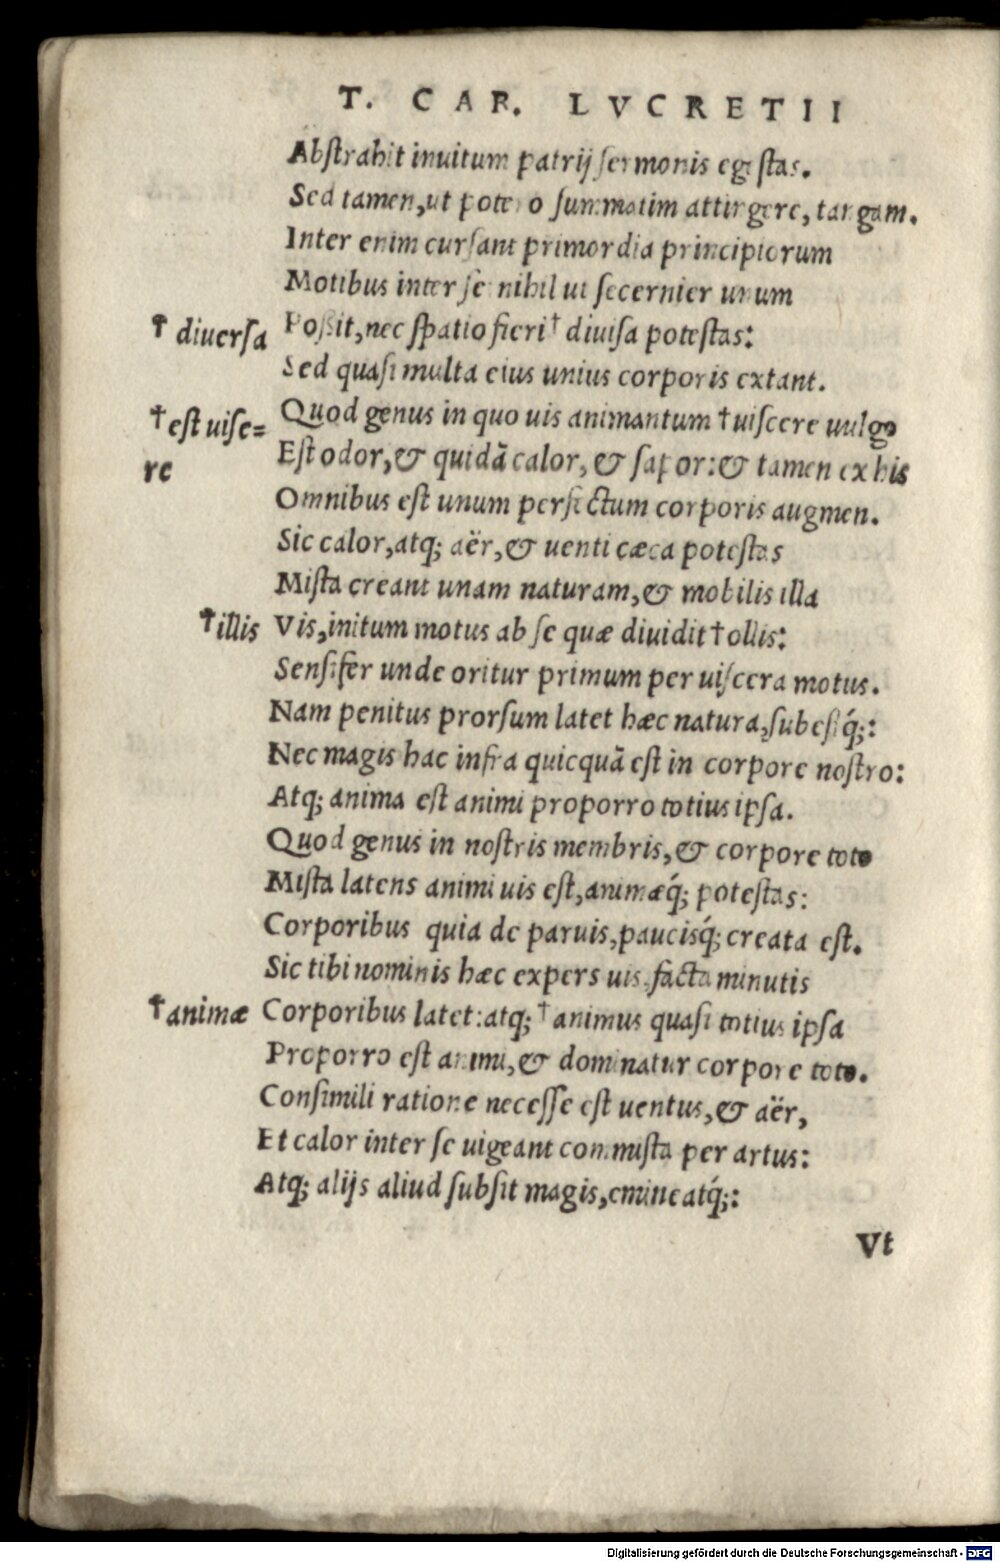 T. CAR. LVCRETII
Abſtrahit inuitum patrij ſermonis egeſtas.
Sed tamen, ut potero ſummatim attingere, tangam.
Inter enim curſant primordia principiorum
Motibus inter ſe: nihil ut ſecernier unum
† diuerſa Poßit, nec ſpatio fieri † diuiſa poteſtas:
Sed quaſi multa eius unius corporis extant.
† eſt uiſe= Quod genus in quo uis animantum † uiſcere uulgo
re Eſt odor, & quidā calor, & ſapor: & tamen ex his
Omnibus eſt unum perfectum corporis augmen.
Sic calor, atq; aër, & uenti cæca poteſtas
Miſta creant unam naturam, & mobilis illa
† illis Vis, initum motus ab ſe quæ diuidit † ollis:
Senſifer unde oritur primum per uiſcera motus.
Nam penitus prorſum latet hæc natura, ſubeſtq́;:
Nec magis hac infra quicquā eſt in corpore noſtro:
Atq; anima eſt animi proporro totius ipſa.
Quod genus in noſtris membris, & corpore toto
Miſta latens animi uis eſt, animæq́; poteſtas:
Corporibus quia de paruis, paucisq́; creata eſt.
Sic tibi nominis hæc expers uis facta minutis
† animæ Corporibus latet: atq; † animus quaſi totius ipſa
Proporro eſt animi, & dominatur corpore toto.
Conſimili ratione neceſſe eſt uentus, & aër,
Et calor inter ſe uigeant commiſta per artus:
Atq; alijs aliud ſubſit magis, emineatq́;:
Vt
Digitalisierung gefördert durch die Deutsche Forschungsgemeinschaft - DFG